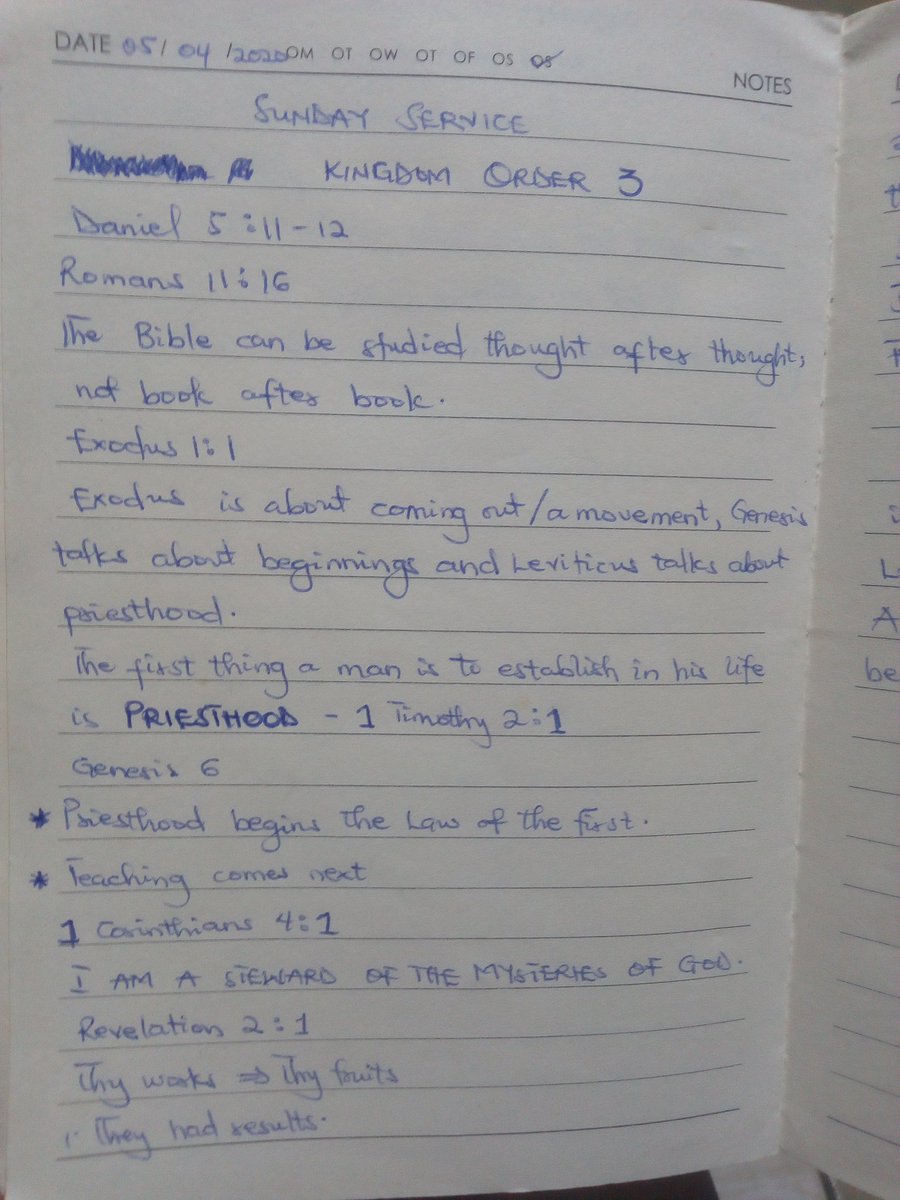 DATE 05/ 04 /2020 OM OT OW OT OF OS OS
NOTES
SUNDAY SERVICE
KINGDOM ORDER 3
Daniel 5:11-12
Romans 11:16
The Bible can be studied thought after thought,
not book after book.
Exodus 1:1
Exodus is about coming out/a movement, Genesis
talks about beginnings and Leviticus talks about
priesthood.
The first thing a man is to establish in his life
is PRIESTHOOD - 1 Timothy 2:1
Genesis 6
* Priesthood begins the Law of the first.
* Teaching comes next
1 Corinthians 4:1
I AM A STEWARD OF THE MYSTERIES OF GOD.
Revelation 2:1
Thy works => Thy fruits
They had results.
A
be